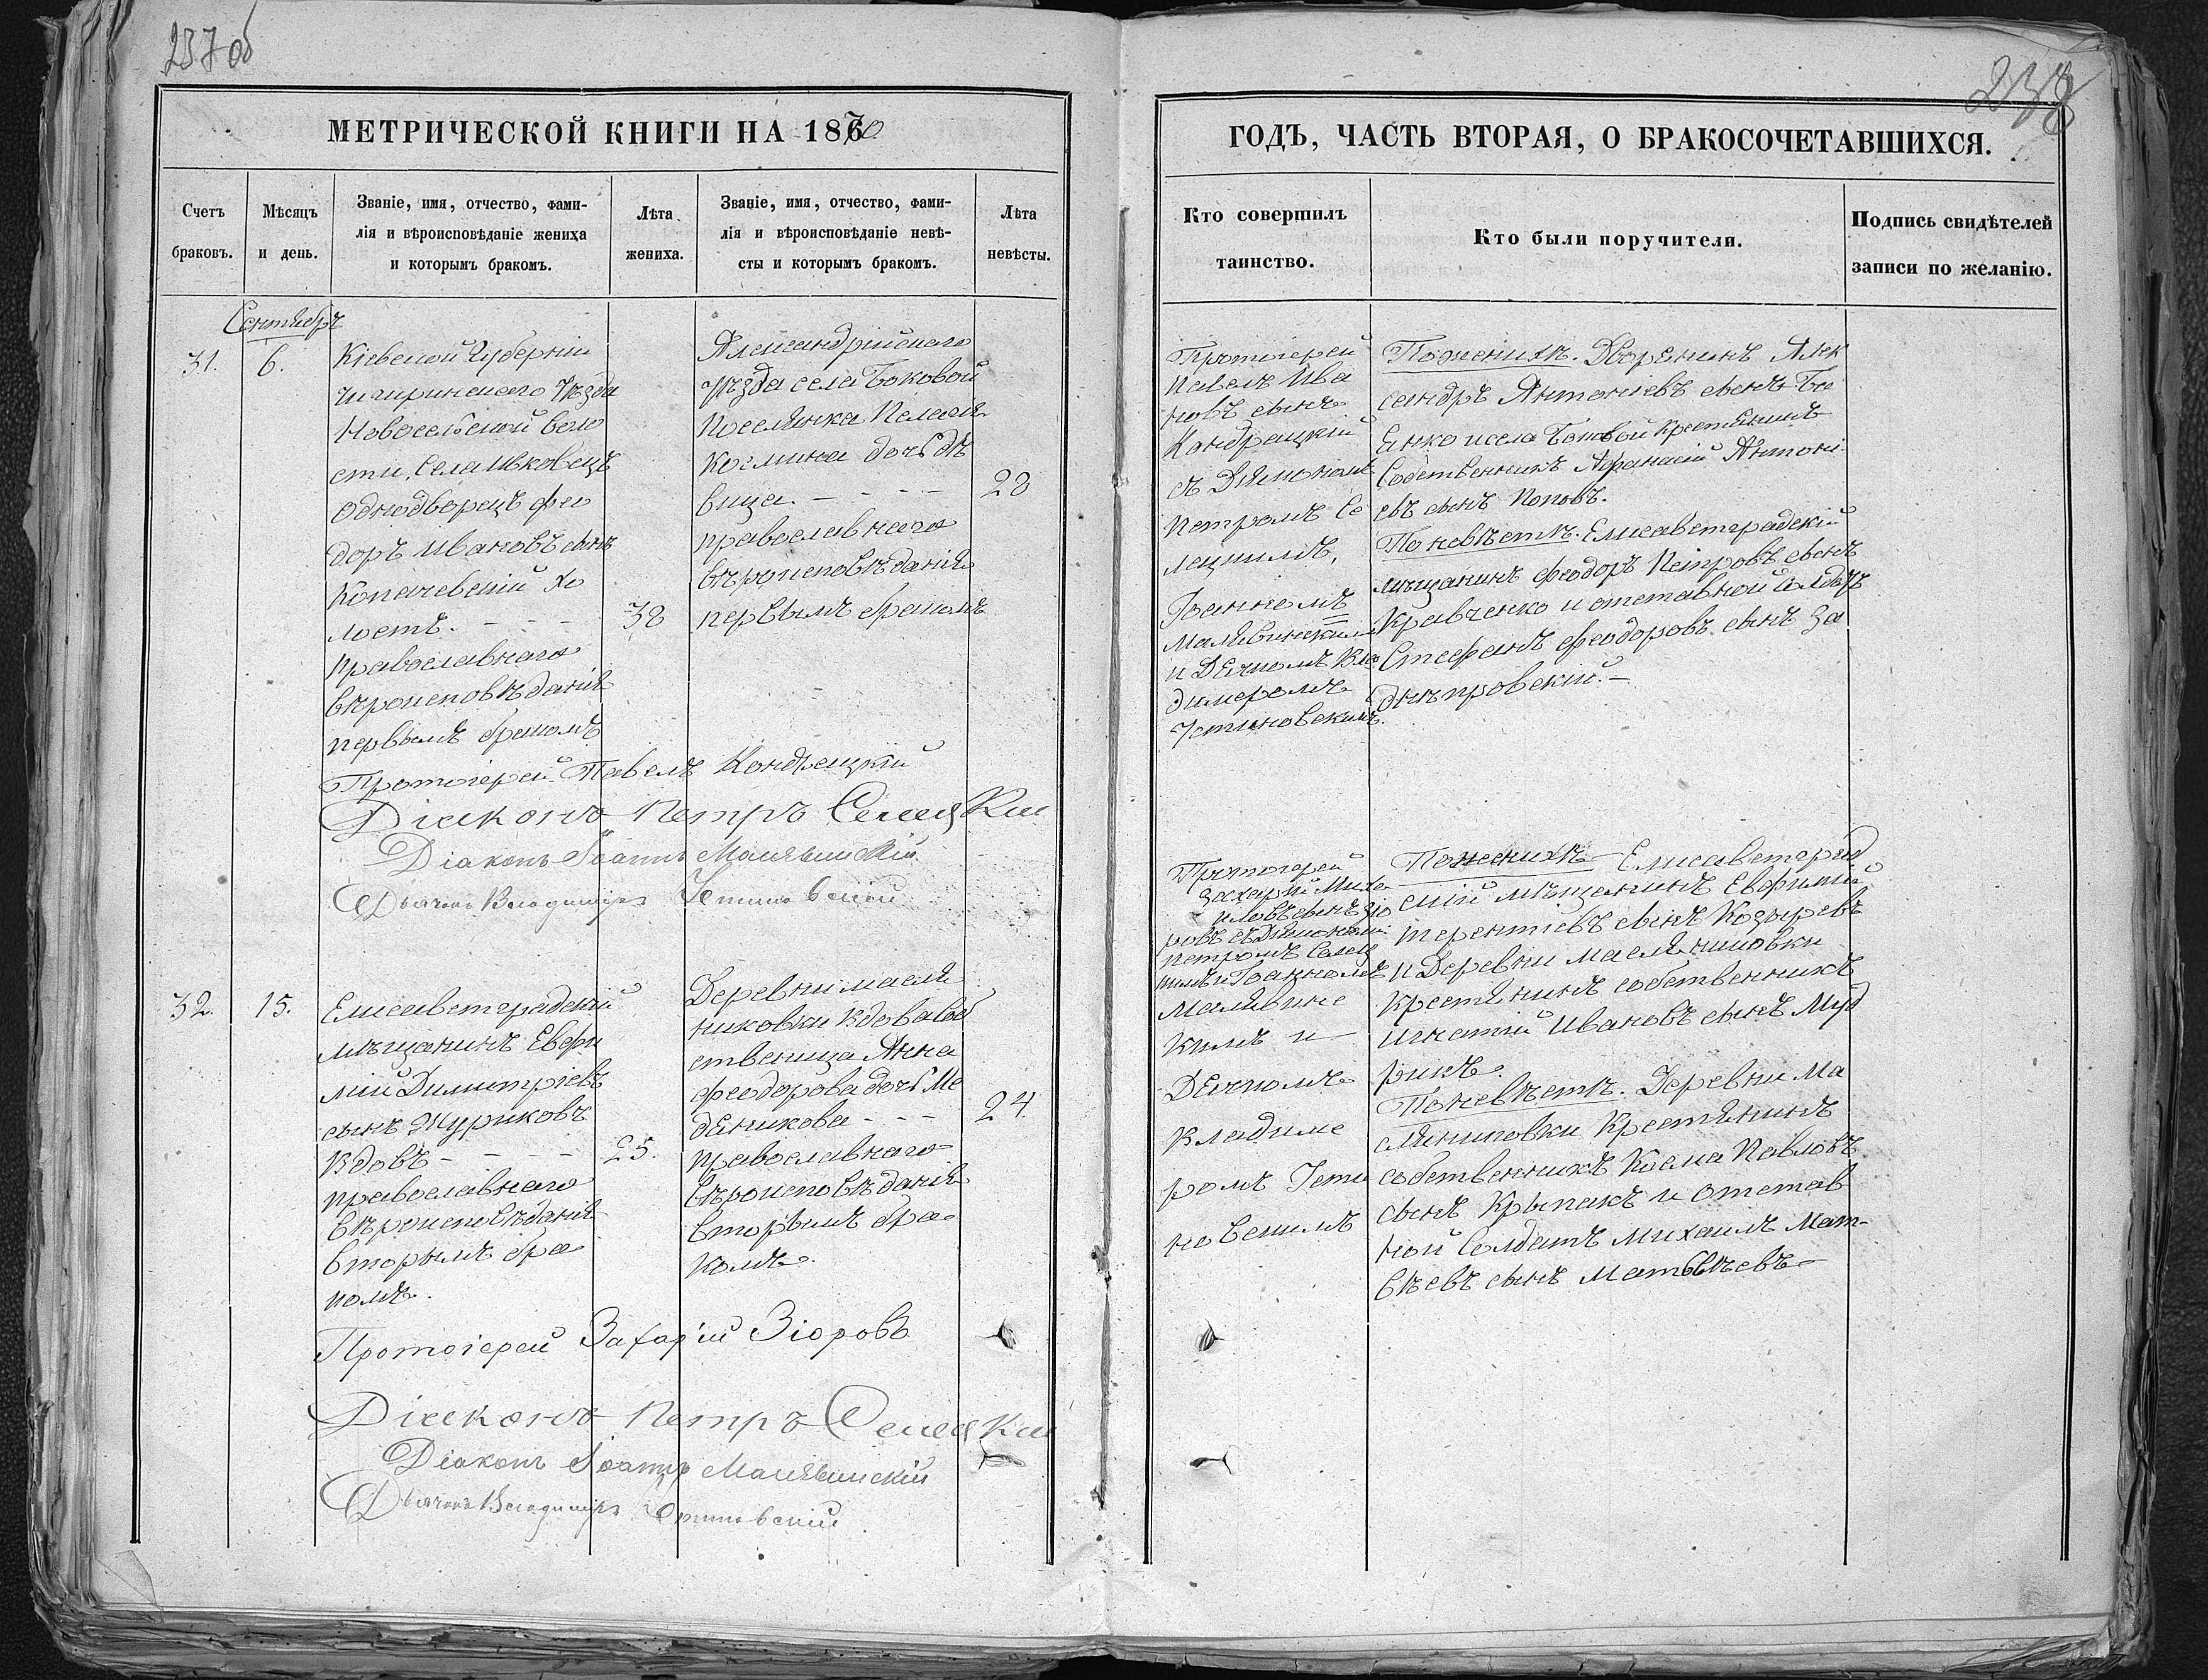 237 об
МЕТРИЧЕСКОЙ КНИГИ НА 1870
Счетъ браковъ.
Мѣсяцъ и день.
Званіе, имя, отчество, фами-
лія и вѣроисповѣданіе жениха
и которымъ бракомъ.
Лѣта жениха.
Званіе, имя, отчество, фами-
лія и вѣроисповѣданіе невѣ-
сты и которымъ бракомъ.
Лѣта невѣсты.
Сентябрь
31.
6.
Кіевской Губерніи
Чигиринскаго Уѣзда
Новосельской Воло
сти, Села Ивковецъ
Однодворецъ Фео
доръ Ивановъ сынъ
Копачевскій Хо
лостъ. - - -
православнаго
вѣроисповѣданія
первымъ бракомъ
38
Александрійскаго
уѣзда села Боковой
Поселянка Пелагія
дочь дѣ
вица. - - - -
православнаго
вѣроисповѣданія
первымъ бракомъ
28
Протоіерей Павелъ Кондрацкій
Діаконъ Петръ Селецкій
Діаконъ Іоаннъ Малявинскій
Дьячокъ Владиміръ Устиновскій
32.
15.
Елисаветградскій
мѣщанинъ Евфи
мій Димитріевъ
сынъ Журиковъ
Вдовъ - - - -
православнаго
вѣроисповѣданія
вторымъ бра
комъ.
25.
Деревни масля
никовки Вдова Соб
ственица Анна
Феодорова дочь Ме
дяникова - - -
православнаго
вѣроисповѣданія
вторымъ бра
комъ.
24.
Протоіерей Захарій Зіоровъ
Діаконъ Петръ Селецкій
Діаконъ Іоаннъ Малявинскій
Дьячокъ Владиміръ Устиновскій
238
ГОДЪ, ЧАСТЬ ВТОРАЯ, О БРАКОСОЧЕТАВШИХСЯ.
Кто совершилъ
таинство.
Кто были поручители.
Подпись свидѣтелей
записи по желанію.
Протоіерей
Павелъ Ива
новъ сынъ
Кондрацкій
съ Діякономъ
Петромъ Се
лецкимъ,
Іоанномъ
Малявинскимъ
и Дячкомъ Вла
димеромъ
Устиновскимъ.
По женихѣ. Дворянинъ Алек
сандръ Антоніевъ сынъ
и села Боковой Крестянинъ
Собственникъ Афанасій Антоні-
евъ сынъ Поповъ.
По невѣстѣ. Елисаветградскій
мѣщанинъ Феодоръ Петровъ сынъ
Кравченко и отставной Солдатъ
Стефанъ Феодоровъ сынъ За
днѣпровскій. -
Протоіерей
Захарій Миха
иловъ сынъ Зіо
ровъ съ Діякономъ
Петромъ Селец
кимъ и Іоанномъ
Малявинс
кимъ и -
Дячкомъ
Владиме
ромъ Усти
новскимъ
По женихѣ Елисаветград
скій мѣщанинъ Евфимій
терентіевъ сынъ Козыревъ
и Деревни масляниковки
Крестянинъ собственникъ
Игнатій Ивановъ сынъ Муд
рикъ.
По невѣстѣ. Деревни Ма
сляниковки Крестянинъ
собственникъ Косма Павловъ
сынъ Крыпакъ и Отстав
ной Солдатъ Михаилъ Мат-
вѣевъ сынъ Матвѣевъ -